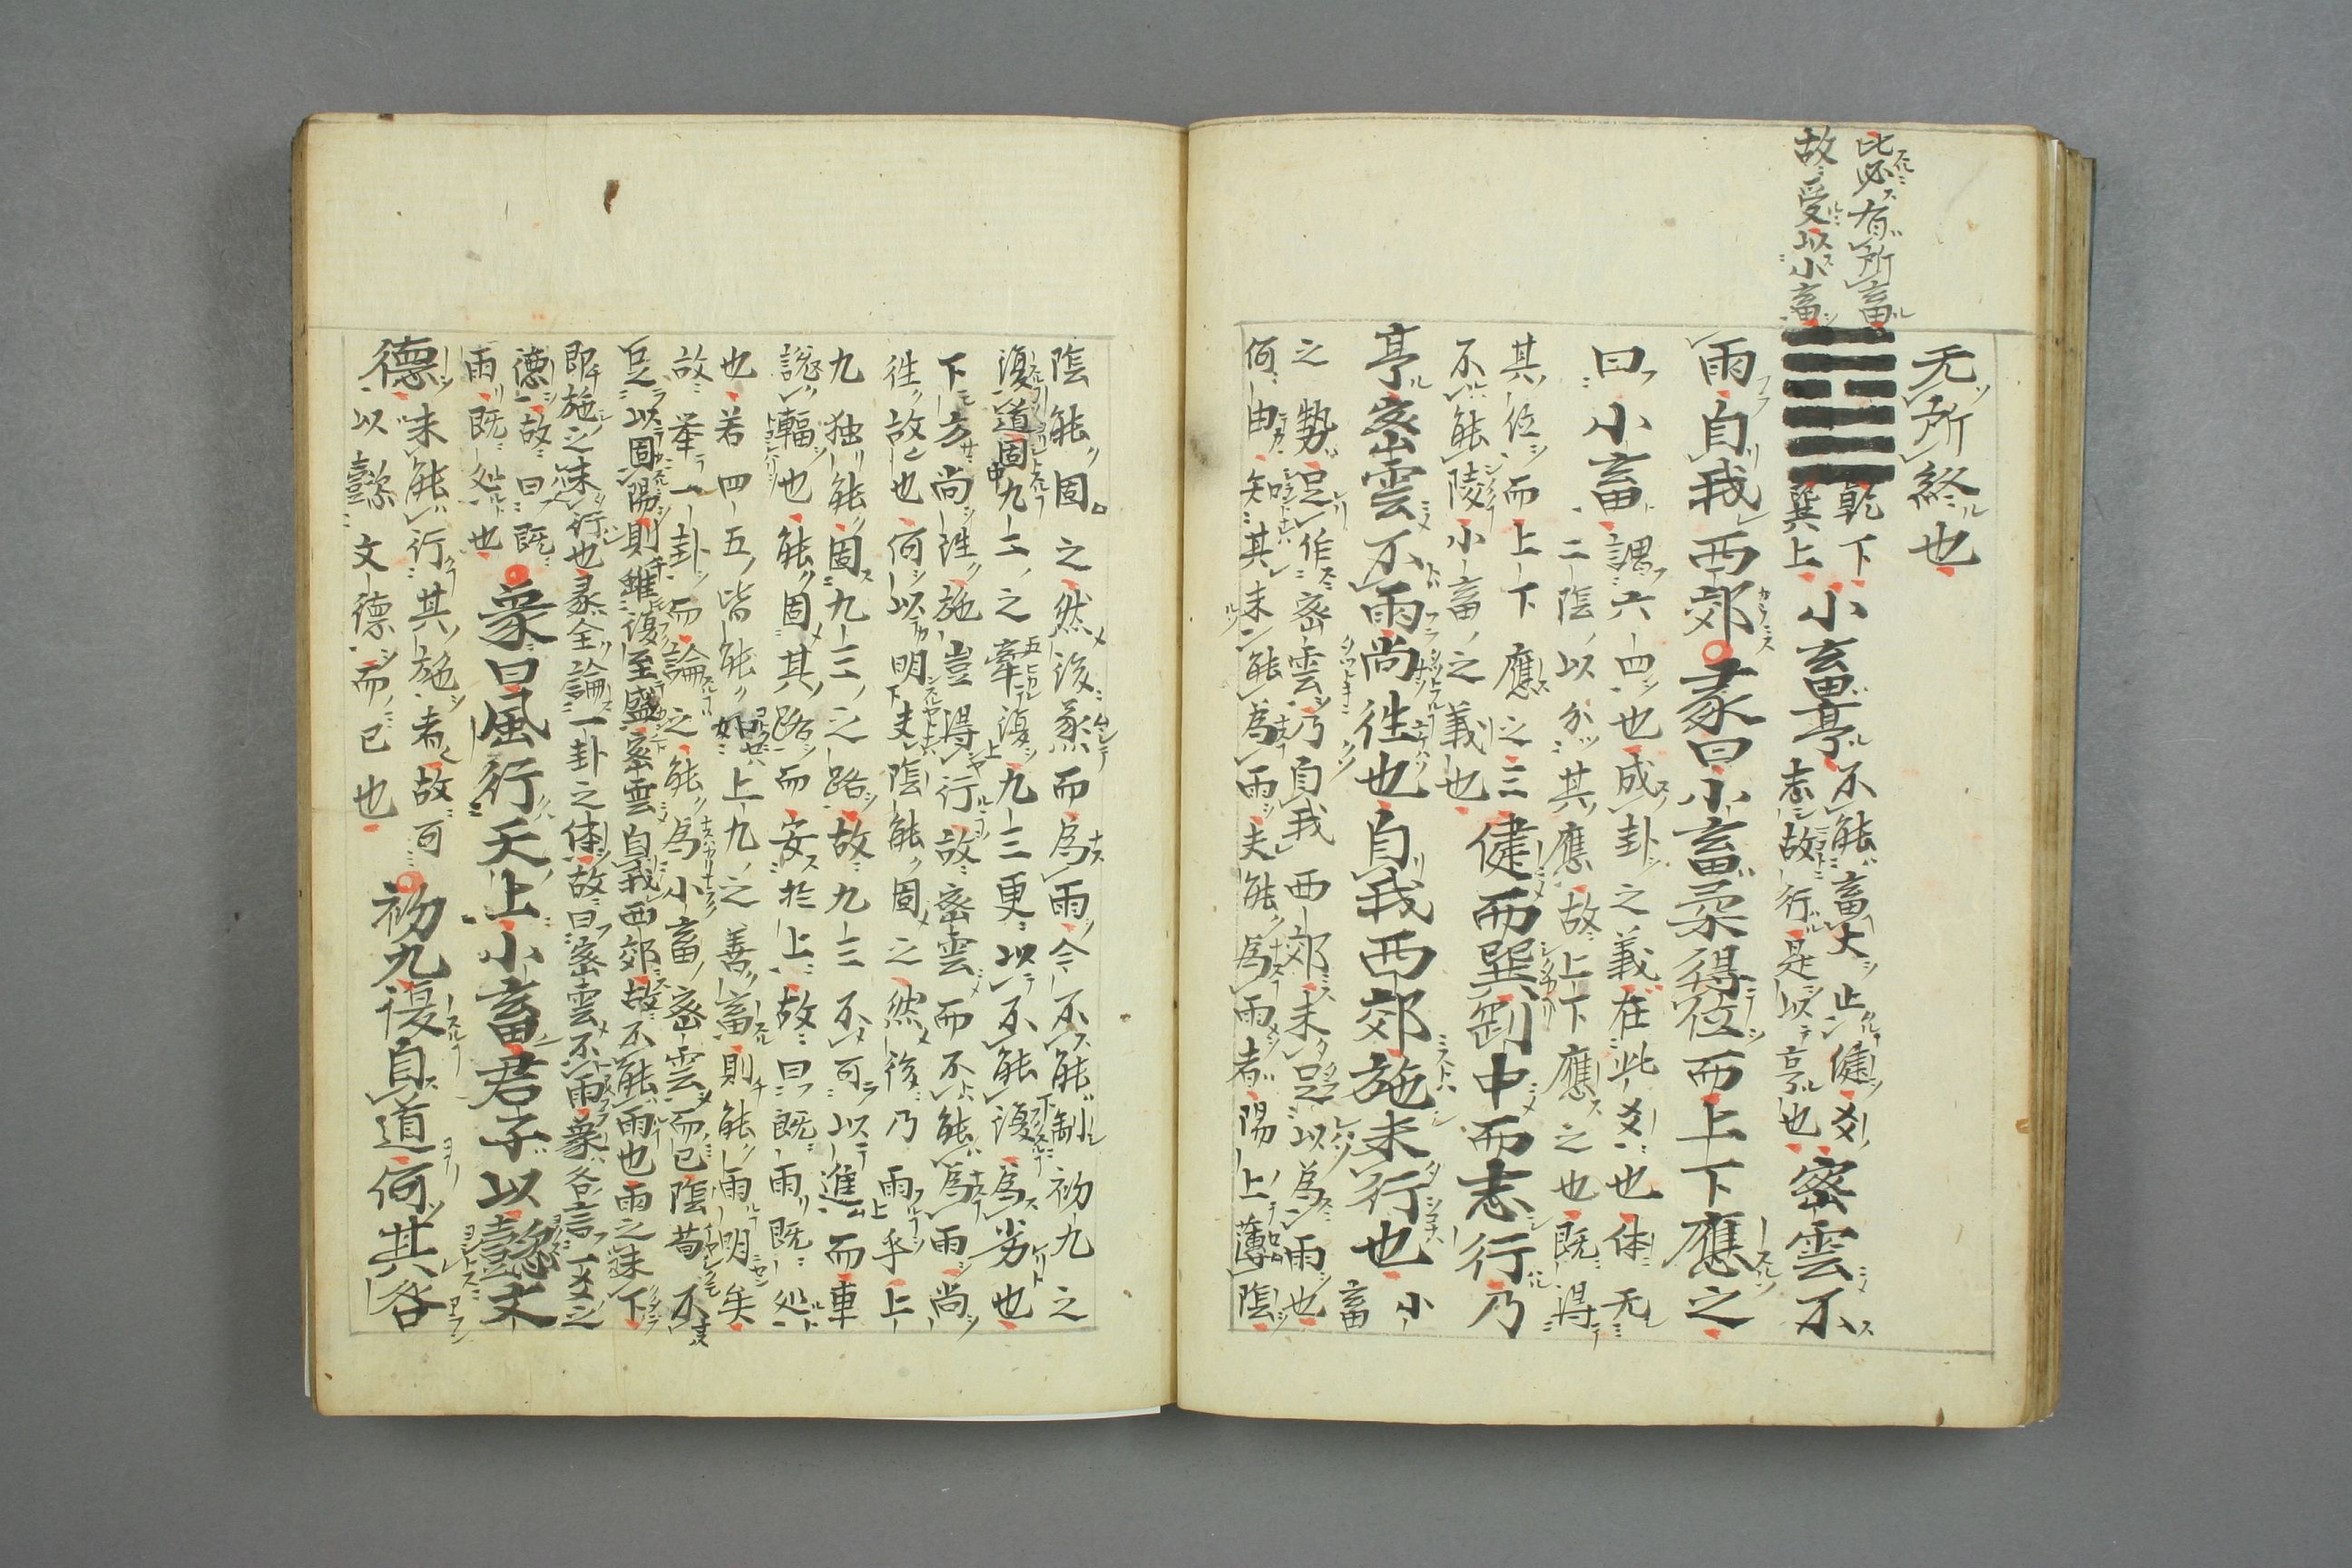 比必有所畜
故受以小畜
无所終也
乾下
巽上
小畜亨不能畜大止健
剛
志故行是以亨也密雲不
雨自我西郊彖曰小畜柔得位而上下應之
曰小畜謂六四也成卦之義在此爻也体无
二陰以分其應故上下應之也既得
其位而上下應之三
不能陵小畜之義也
健而巽剛中而志行乃
亨密雲不雨尚往也自我西郊施未行也小
畜
之勢足作密雲乃自我西郊未足以為雨也
何由知其未能為雨夫能為雨者陽上薄陰
陰能固之然後烝而為雨今不能制初九之
復道固九二之牽復九三更以不能復為劣也
下方尚往施豈得行故密雲而不能為雨尚
往故也何以明夫陰能固之然後乃雨乎上
九独能固九三之路故九三不可以進而車
說輻也能固其路而安於上故曰既雨既処
也若四五皆能如上九之善畜則能雨明矣
故舉一卦而論之能為小畜密雲而已陰苟不
足以固陽則雖復至盛密雲自我西郊故不能雨也雨之未下
即施之未行也彖全論一卦之体故曰密雲不雨象各言一爻之
德故曰既
雨既処也
象曰風行天上小畜君子以懿文
德未能行其施者故可
以懿文德而已也
初九復自道何其咎